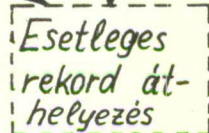 Esetleges
rekord át-
helyezés